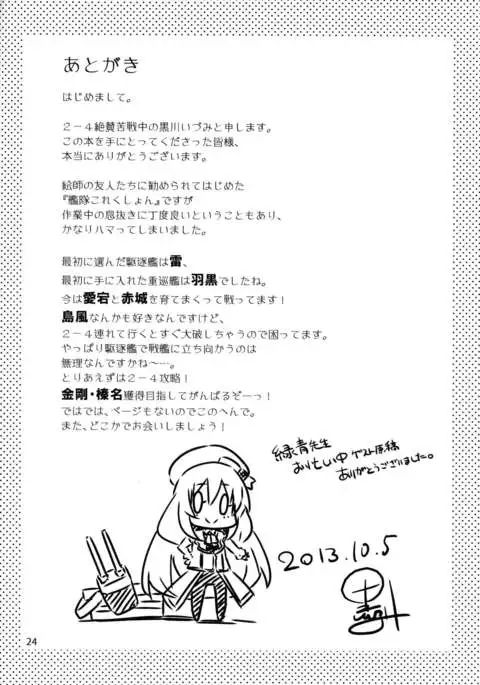 あとがき
はじめまして。
2-4絶賛苦戦中の黒川いづみと申します。
この本を手にとってくださった皆様、
本当にありがとうございます。
絵師の友人たちに勧められてはじめた
『艦隊これくしょん』ですが
作業中の息抜きに丁度良いということもあり、
かなりハマってしまいました。
最初に選んだ駆逐艦は雷、
最初に手に入れた重巡艦は羽黒でしたね。
今は愛宕と赤城を育てまくって戦ってます!
島風なんかも好きなんですけど、
2-4連れて行くとすぐ大破しちゃうので困ってます。
やっぱり駆逐艦で戦艦に立ち向かうのは
無理なんですかね～…。
とりあえずは2-4攻略!
金剛・榛名獲得目指してがんばるぞーっ!
ではでは、ページもないのでこのへんで。
また、どこかでお会いしましょう!
緑青先生
お忙しい中ゲスト原稿
ありがとうございました。
2013.10.5
24